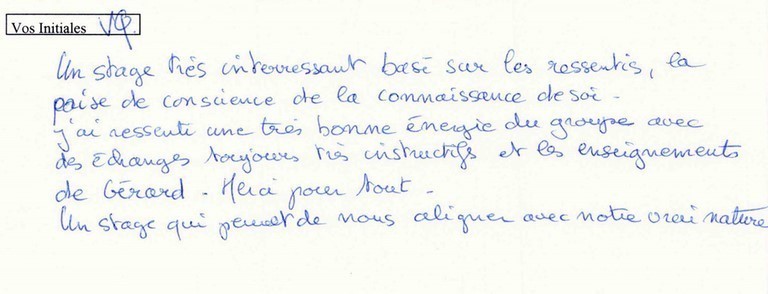 Vos Initiales VQ
Un stage très interressant basé sur les ressentis, la
prise de conscience de la connaissance de soi -
J'ai ressenti une très bonne énergie du groupe avec
des échanges toujours très instructifs et les enseignements
de Gérard - Merci pour tout -
Un stage qui permet de nous aligner avec notre vrai nature